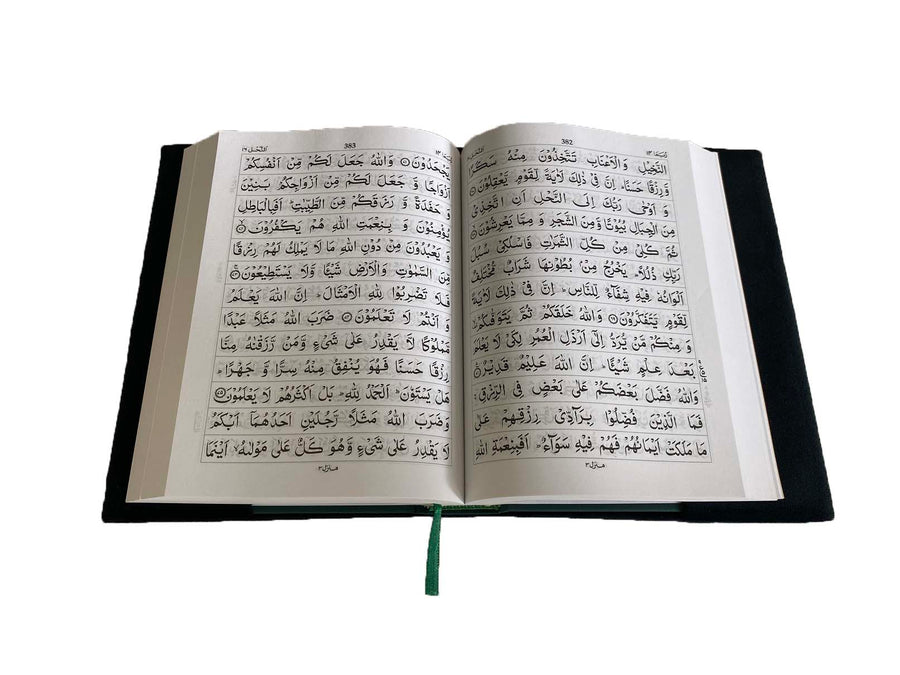 382
النَّخِيْلِ وَ الْاَعْنَابِ تَتَّخِذُوْنَ مِنْهُ سَكَرًا
وَّ رِزْقًا حَسَنًا ؕ اِنَّ فِیْ ذٰلِكَ لَاٰیَةً لِّقَوْمٍ یَّعْقِلُوْنَ
وَ اَوْحٰی رَبُّكَ اِلَی النَّحْلِ اَنِ اتَّخِذِیْ
مِنَ الْجِبَالِ بُیُوْتًا وَّ مِنَ الشَّجَرِ وَ مِمَّا یَعْرِشُوْنَ
ثُمَّ كُلِیْ مِنْ كُلِّ الثَّمَرٰتِ فَاسْلُكِیْ سُبُلَ
رَبِّكِ ذُلُلًا ؕ یَخْرُجُ مِنْۢ بُطُوْنِهَا شَرَابٌ مُّخْتَلِفٌ
اَلْوَانُهٗ فِیْهِ شِفَآءٌ لِّلنَّاسِ ؕ اِنَّ فِیْ ذٰلِكَ لَاٰیَةً
لِّقَوْمٍ یَّتَفَكَّرُوْنَ وَ اللّٰهُ خَلَقَكُمْ ثُمَّ یَتَوَفّٰىكُمْ
وَ مِنْكُمْ مَّنْ یُّرَدُّ اِلٰۤی اَرْذَلِ الْعُمُرِ لِكَیْ لَا یَعْلَمَ
بَعْدَ عِلْمٍ شَیْـًٔا ؕ اِنَّ اللّٰهَ عَلِیْمٌ قَدِیْرٌ
وَ اللّٰهُ فَضَّلَ بَعْضَكُمْ عَلٰی بَعْضٍ فِی الرِّزْقِ ۚ
فَمَا الَّذِیْنَ فُضِّلُوْا بِرَآدِّیْ رِزْقِهِمْ عَلٰی
مَا مَلَكَتْ اَیْمَانُهُمْ فَهُمْ فِیْهِ سَوَآءٌ ؕ اَفَبِنِعْمَةِ اللّٰهِ
منزل ٣
383
النحل ١٦
یَجْحَدُوْنَ وَ اللّٰهُ جَعَلَ لَكُمْ مِّنْ اَنْفُسِكُمْ
اَزْوَاجًا وَّ جَعَلَ لَكُمْ مِّنْ اَزْوَاجِكُمْ بَنِیْنَ
وَ حَفَدَةً وَّ رَزَقَكُمْ مِّنَ الطَّیِّبٰتِ ؕ اَفَبِالْبَاطِلِ
یُؤْمِنُوْنَ وَ بِنِعْمَتِ اللّٰهِ هُمْ یَكْفُرُوْنَ
وَ یَعْبُدُوْنَ مِنْ دُوْنِ اللّٰهِ مَا لَا یَمْلِكُ لَهُمْ رِزْقًا
مِّنَ السَّمٰوٰتِ وَ الْاَرْضِ شَیْـًٔا وَّ لَا یَسْتَطِیْعُوْنَ
فَلَا تَضْرِبُوْا لِلّٰهِ الْاَمْثَالَ ؕ اِنَّ اللّٰهَ یَعْلَمُ
وَ اَنْتُمْ لَا تَعْلَمُوْنَ ضَرَبَ اللّٰهُ مَثَلًا عَبْدًا
مَّمْلُوْكًا لَّا یَقْدِرُ عَلٰی شَیْءٍ وَّ مَنْ رَّزَقْنٰهُ مِنَّا
رِزْقًا حَسَنًا فَهُوَ یُنْفِقُ مِنْهُ سِرًّا وَّ جَهْرًا ؕ
هَلْ یَسْتَوٗنَ ؕ اَلْحَمْدُ لِلّٰهِ ؕ بَلْ اَكْثَرُهُمْ لَا یَعْلَمُوْنَ
وَ ضَرَبَ اللّٰهُ مَثَلًا رَّجُلَیْنِ اَحَدُهُمَاۤ اَبْكَمُ
لَا یَقْدِرُ عَلٰی شَیْءٍ وَّ هُوَ كَلٌّ عَلٰی مَوْلٰىهُ ۙ اَیْنَمَا
منزل ٣